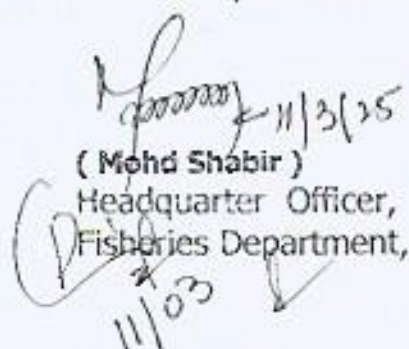 11/3/25
( Mohd Shabir )
Headquarter Officer,
Fisheries Department,
11/03